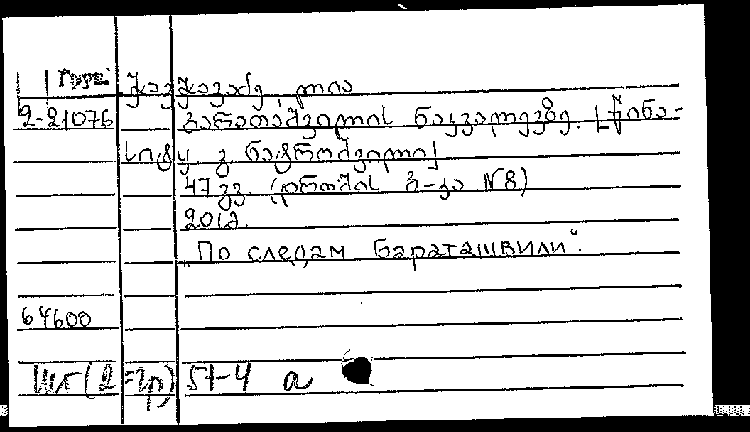 Груз. ჭავჭავაძე, ილია
2-21076 ბარათაშვილის ნაკვალევზე. [წინა-
სიტყ. გ. ნატროშვილი]
47 გვ. (დროშის ბ-კა N8)
20 მ.
„По следам Бараташвили".
64600
Шг(2=Гр) 51-4 а